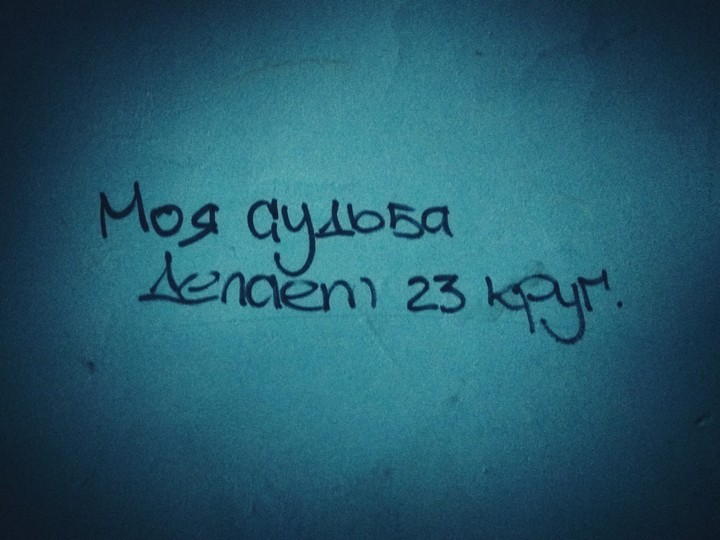 Моя судьба
делает 23 круг.